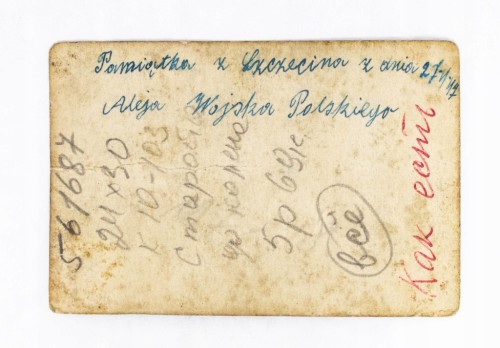 Pamiątka z Szczecina z dnia 27-VI-47
Aleja Wojska Polskiego
561687
24x30
до колена
5р 69к.
все
Как есть